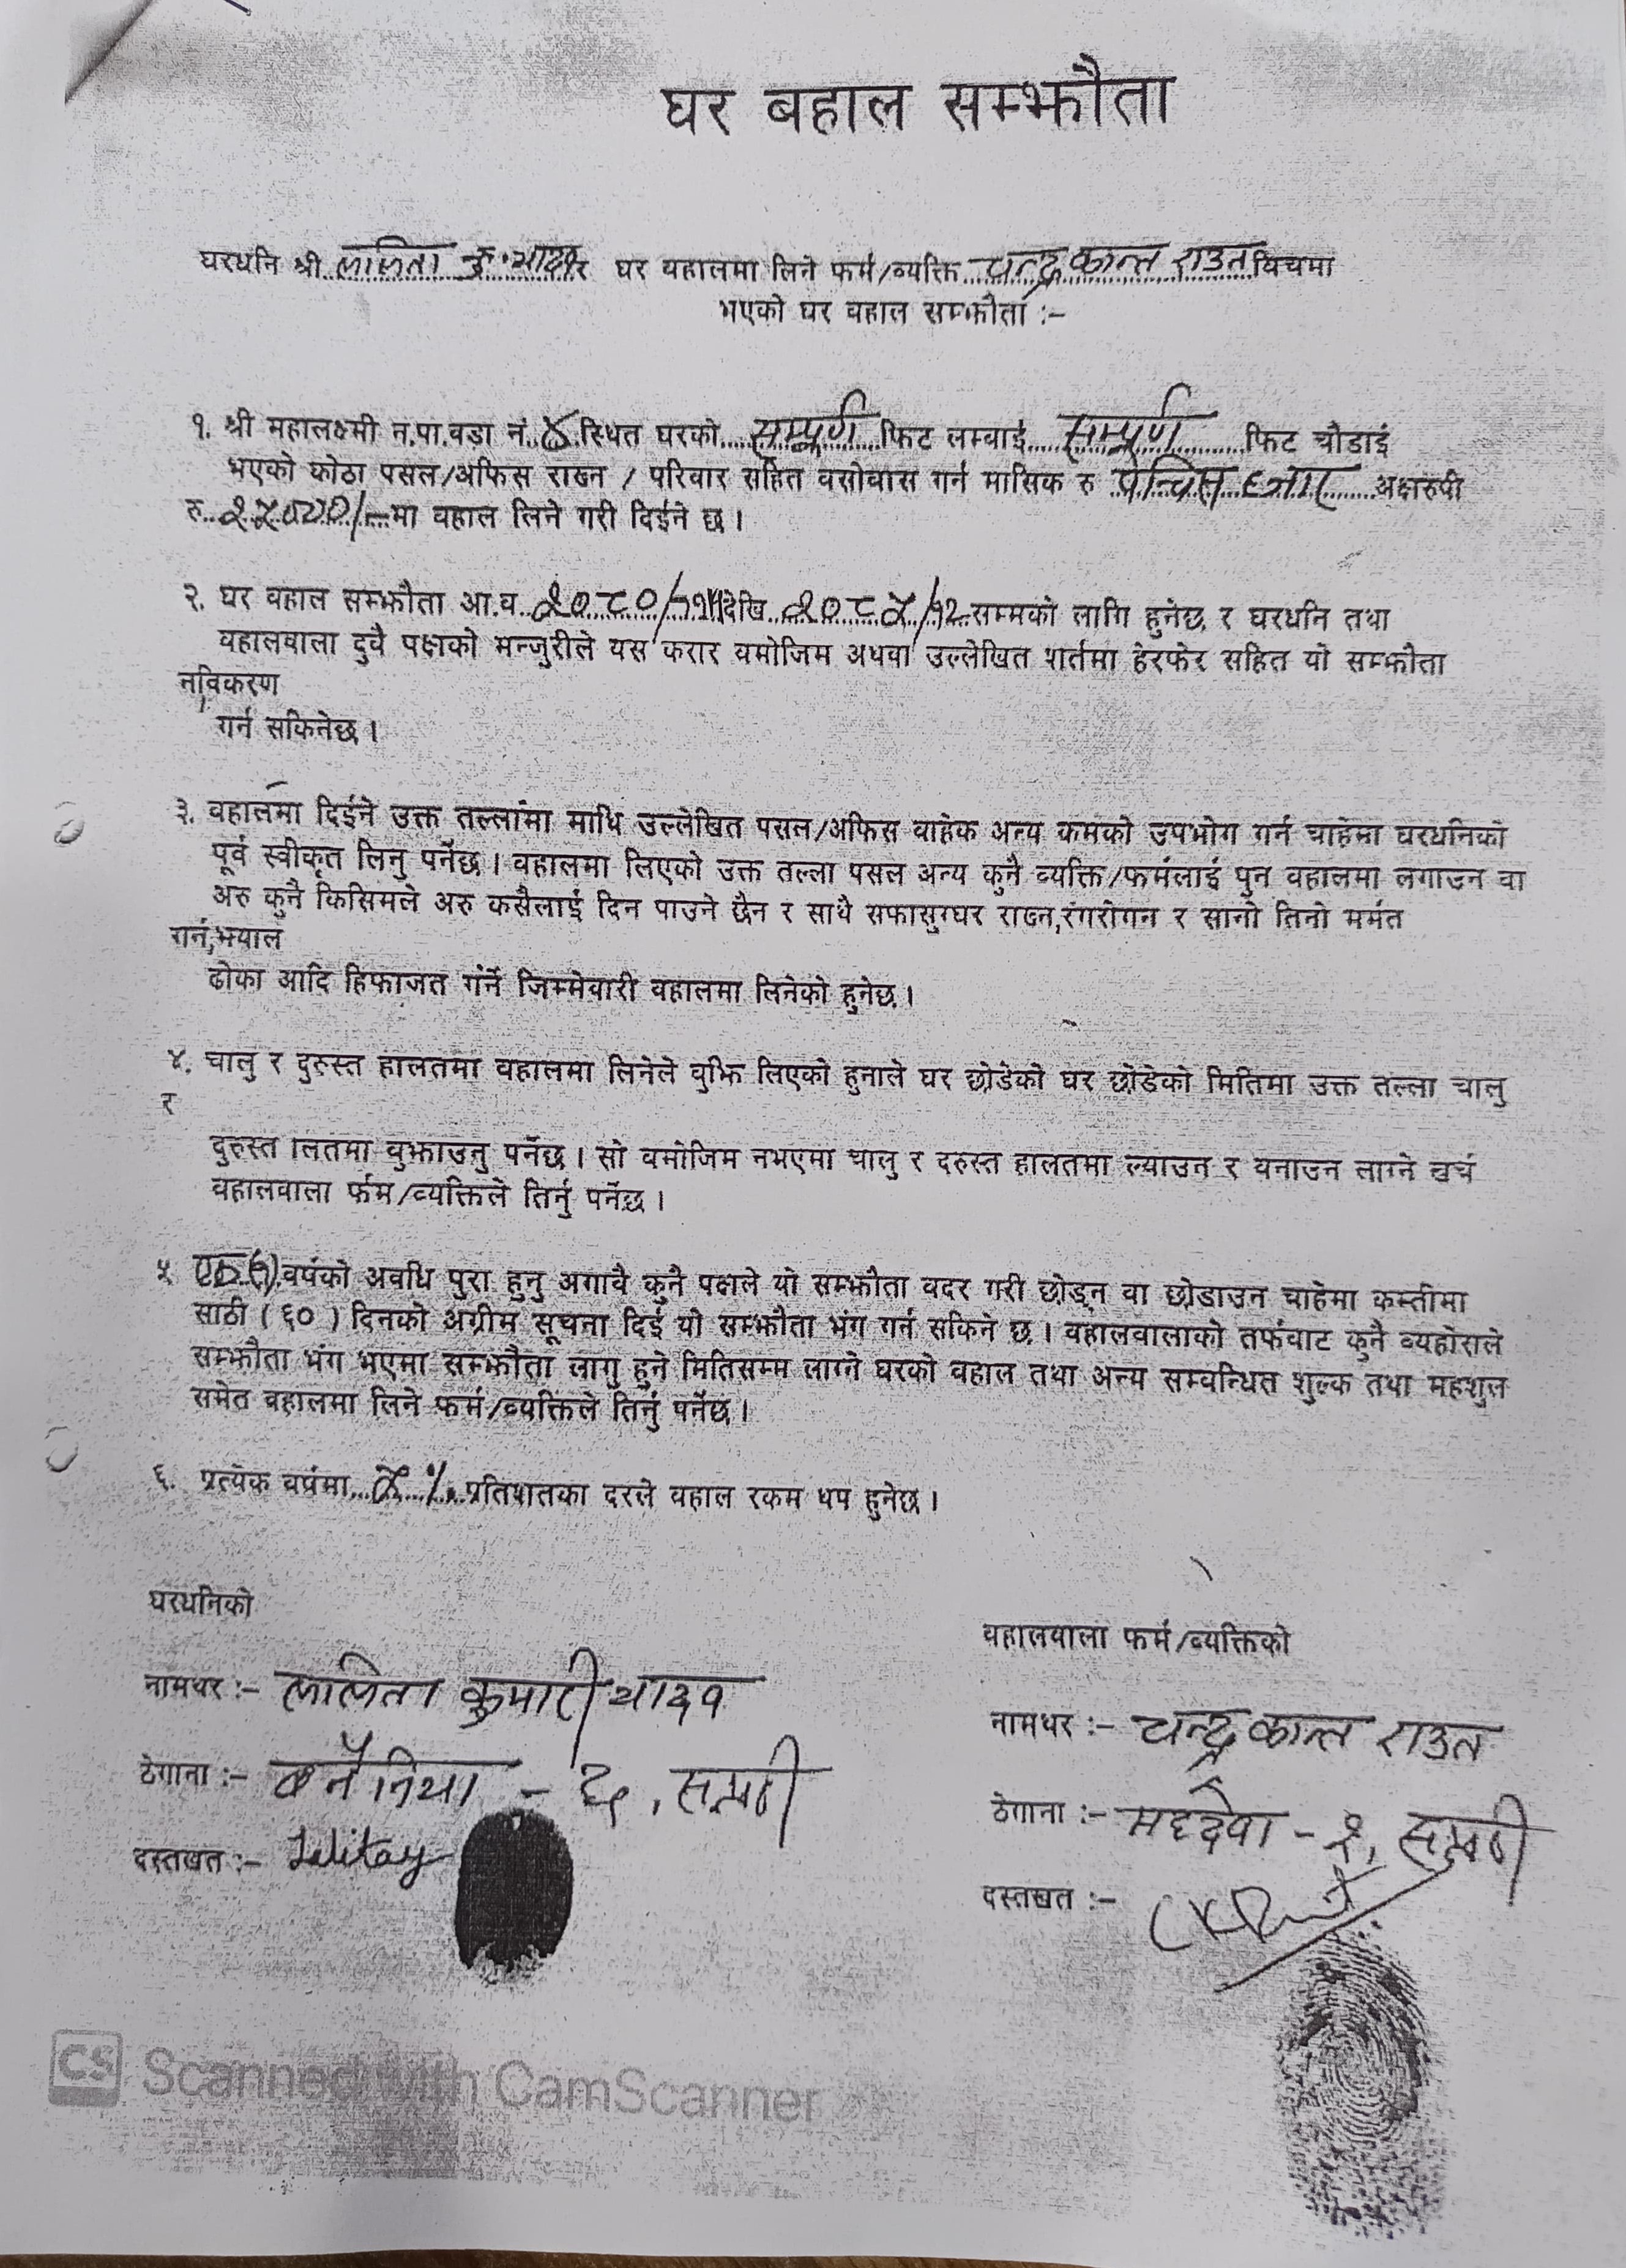 घर बहाल सम्झौता
घरधनि श्री ललिता कु. यादव र घर वहालमा लिने फर्म/व्यक्ति चन्द्र कान्त राउत विचमा
भएको घर वहाल सम्झौता :-
१. श्री महालक्ष्मी न.पा.वडा नं. स्थित घरको सम्पूर्ण फिट लम्वाई सम्पूर्ण फिट चौडाई
भएको कोठा पसल/अफिस राख्न / परिवार सहित वसोवास गर्न मासिक रु पच्चिस हजार अक्षरुपी
रु. २५०००/- मा वहाल लिने गरी दिईने छ ।
२. घर वहाल सम्झौता आ.व. देखि सम्मको लागि हुनेछ र घरधनि तथा
वहालवाला दुवै पक्षको मन्जुरीले यस करार वमोजिम अथवा उल्लेखित शर्तमा हेरफेर सहित यो सम्झौता
नविकरण
गर्न सकिनेछ ।
३. वहालमा दिईने उक्त तल्लामा माथि उल्लेखित पसल/अफिस वाहेक अन्य कमको उपभोग गर्न चाहेमा घरधनिको
पूर्व स्वीकृत लिनु पर्नेछ । वहालमा लिएको उक्त तल्ला पसल अन्य कुनै व्यक्ति/फर्मलाई पुन वहालमा लगाउन वा
अरु कुनै किसिमले अरु कसैलाई दिन पाउने छैन र साथै सफासुग्घर राख्न,रंगरोगन र सानो तिनो मर्मत
गर्न,झ्याल
ढोका आदि हिफाजत गर्ने जिम्मेवारी वहालमा लिनेको हुनेछ ।
४. चालु र दुरुस्त हालतमा वहालमा लिनेले वुझि लिएको हुनाले घर छोडेको घर छोडेको मितिमा उक्त तल्ला चालु
र
दुरुस्त ालतमा वुझाउनु पर्नेछ । सो वमोजिम नभएमा चालु र दरुस्त हालतमा ल्याउन र वनाउन लाग्ने खर्च
वहालवाला फर्म/व्यक्तिले तिर्नु पर्नेछ ।
५ वर्षको अवधि पुरा हुनु अगावै कुनै पक्षले यो सम्झौता वदर गरी छोड्न वा छोडाउन चाहेमा कम्तीमा
साठी ( ६० ) दिनको अग्रीम सूचना दिई यो सम्झौता भंग गर्न सकिने छ । वहालवालाको तर्फवाट कुनै व्यहोराले
सम्झौता भंग भएमा सम्झौता लागु हुने मितिसम्म लाग्ने घरको वहाल तथा अन्य सम्वन्धित शुल्क तथा महशुल
समेत वहालमा लिने फर्म/व्यक्तिले तिर्नु पर्नेछ ।
६. प्रत्येक वर्षमा प्रतिशतका दरले वहाल रकम थप हुनेछ ।
घरधनिको
वहालवाला फर्म/व्यक्तिको
नामथर :- ललिता कुमारी यादव
नामथर :- चन्द्र कान्त राउत
ठेगाना :- सप्तरी
ठेगाना :- महदेवा - २, सप्तरी
दस्तखत :- Lalitay
दस्तखत :-
CS Scanned with CamScanner